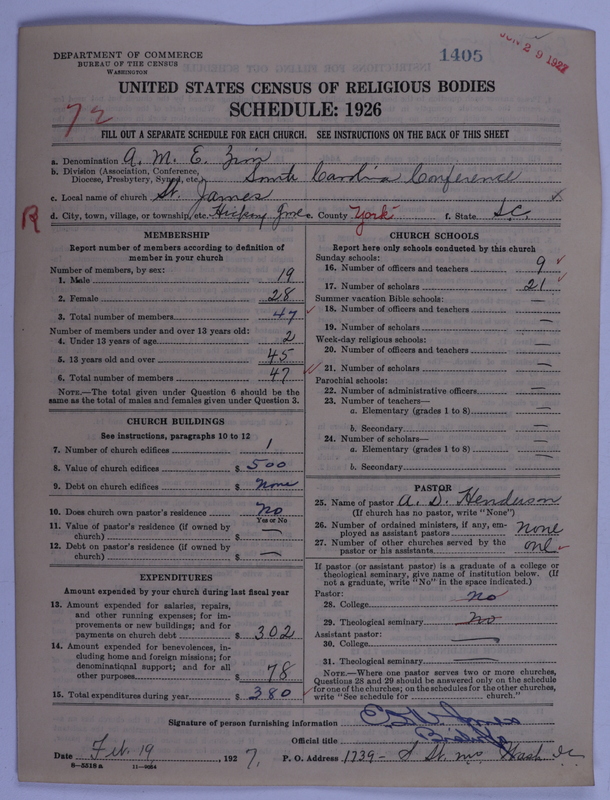 DEPARTMENT OF COMMERCE
BUREAU OF THE CENSUS
WASHINGTON
1405
JUN 29 1927
UNITED STATES CENSUS OF RELIGIOUS BODIES
SCHEDULE: 1926
72
FILL OUT A SEPARATE SCHEDULE FOR EACH CHURCH. SEE INSTRUCTIONS ON THE BACK OF THIS SHEET
a. Denomination A. M. E. Zion
b. Division (Association, Conference, Diocese, Presbytery, Synod, etc.) South Carolina Conference
c. Local name of church St. James
R
d. City, town, village, or township, etc. Hickory Grove e. County York f. State S.C.
MEMBERSHIP
Report number of members according to definition of
member in your church
Number of members, by sex:
1. Male 19
2. Female 28
3. Total number of members 47
Number of members under and over 13 years old:
4. Under 13 years of age 2
5. 13 years old and over 45
6. Total number of members 47
NOTE.—The total given under Question 6 should be
same as the total of males and females given under Question 3.
CHURCH BUILDINGS
See instructions, paragraphs 10 to 12
7. Number of church edifices 1
8. Value of church edifices $ 500
9. Debt on church edifices $ None
10. Does church own pastor's residence No
Yes or No
11. Value of pastor's residence (if owned by
church) $ —
12. Debt on pastor's residence (if owned by
church) $ —
EXPENDITURES
Amount expended by your church during last fiscal year
13. Amount expended for salaries, repairs,
and other running expenses; for im-
provements or new buildings; and for
payments on church debt $ 302
14. Amount expended for benevolences, in-
cluding home and foreign missions; for
denominational support; and for all
other purposes $ 78
15. Total expenditures during year $ 380
CHURCH SCHOOLS
Report here only schools conducted by this church
Sunday schools:
16. Number of officers and teachers 9
17. Number of scholars 21
Summer vacation Bible schools:
18. Number of officers and teachers —
19. Number of scholars —
Week-day religious schools:
20. Number of officers and teachers —
21. Number of scholars —
Parochial schools:
22. Number of administrative officers —
23. Number of teachers—
a. Elementary (grades 1 to 8) —
b. Secondary —
24. Number of scholars—
a. Elementary (grades 1 to 8) —
b. Secondary —
PASTOR
25. Name of pastor A. D. Henderson
(If church has no pastor, write "None")
26. Number of ordained ministers, if any, em-
ployed as assistant pastors none
27. Number of other churches served by the
pastor or his assistants one
If pastor (or assistant pastor) is a graduate of a college or
theological seminary, give name of institution below. (If
not a graduate, write "No" in the space indicated.)
Pastor:
28. College No
29. Theological seminary No
Assistant pastor:
30. College —
31. Theological seminary —
NOTE.—Where one pastor serves two or more churches,
Questions 28 and 29 should be answered only on the schedule
for one of the churches; on the schedules for the other churches,
write "See schedule for church."
Signature of person furnishing information Jones
Official title Bishop
Date Feb. 19, 1927. P. O. Address 1739- St. Wash D.C.
8—5518 a 11—9054